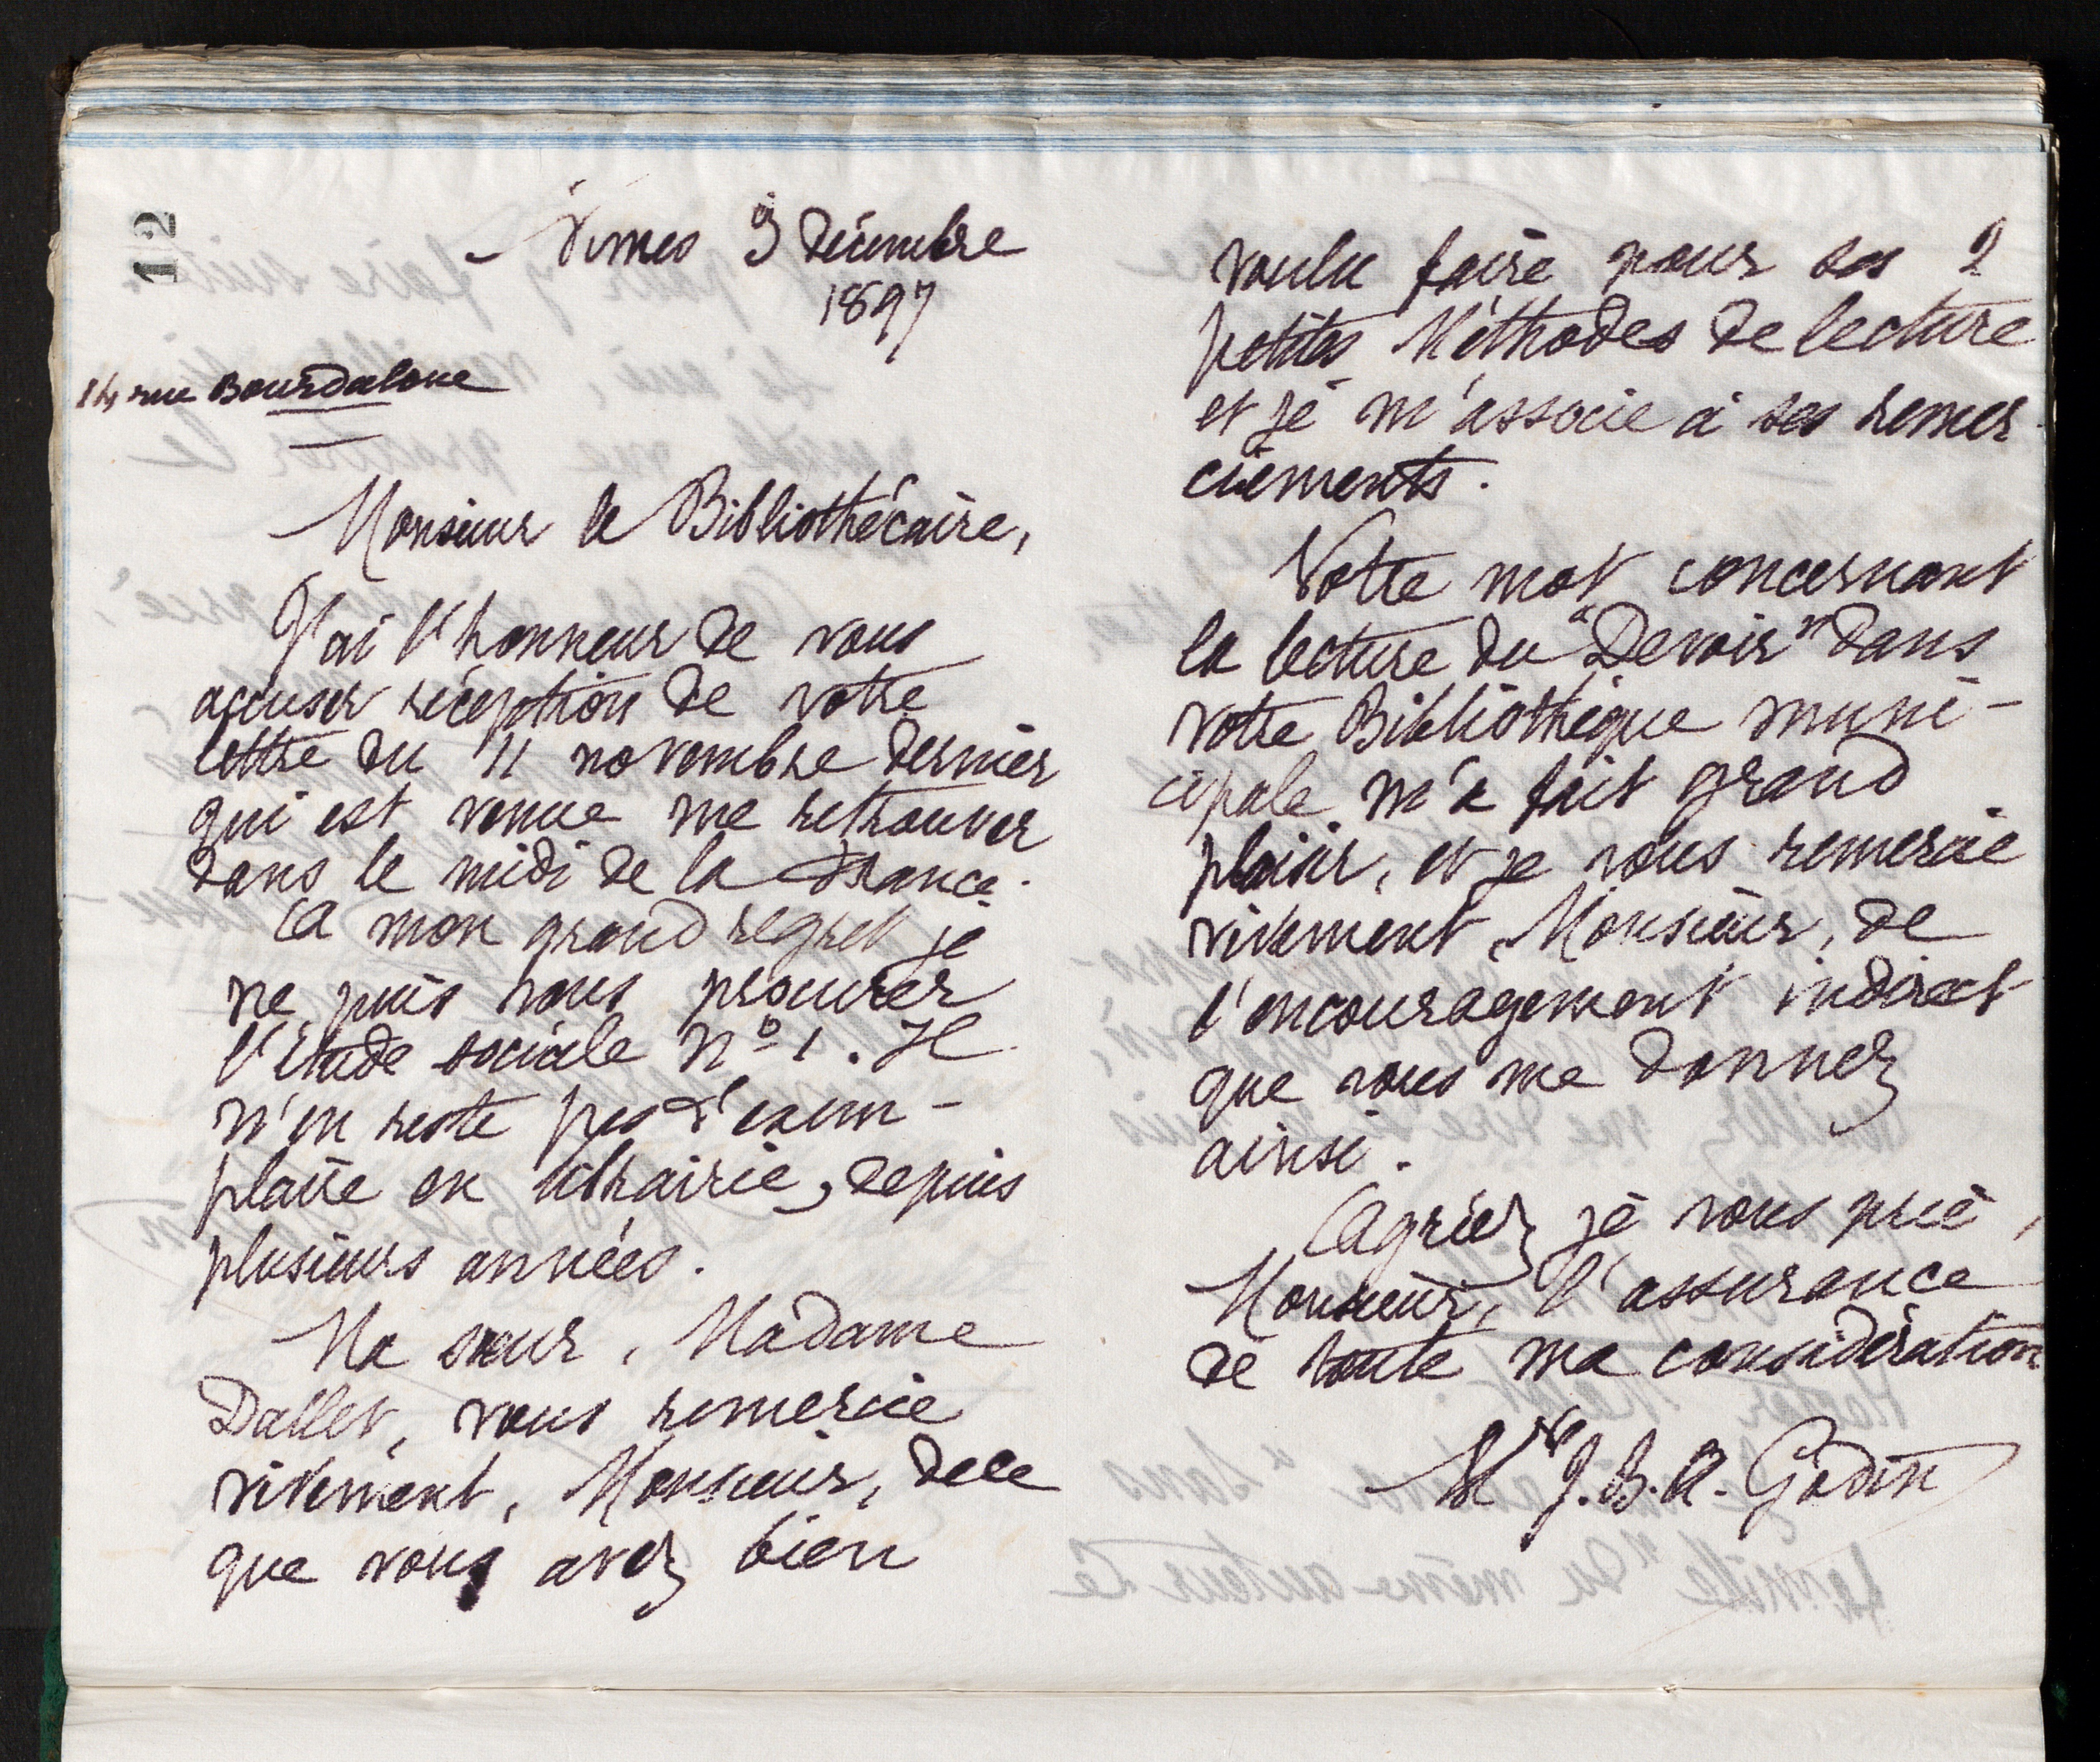 12
Nimes 3 décembre
1897
14 rue Bourdaloue
Monsieur le Bibliothécaire,
J'ai l'honneur de vous
accuser réception de votre
lettre du 11 novembre dernier
qui est venue me retrouver
dans le midi de la France.
A mon grand regret je
ne puis vous procurer
l'Etude sociale No 1. Il
n'en reste pas d'exem-
plaire en librairie, depuis
plusieurs années.
Ma sœur, Madame
Dallet, vous remercie
vivement, Monsieur, de ce
que vous avez bien
voulu faire pour ses 2
petites Méthodes de lecture
et je m'associe à ses remer
ciements.
Votre mot concernant
la lecture du "Devoir" dans
votre Bibliothèque muni-
cipale m'a fait grand
plaisir, et je vous remercie
vivement, Monsieur, de
l'encouragement indirect
que vous me donnez
ainsi.
Agréez je vous prie,
Monsieur, l'assurance
de toute ma considération
Me J. B. A. Godin